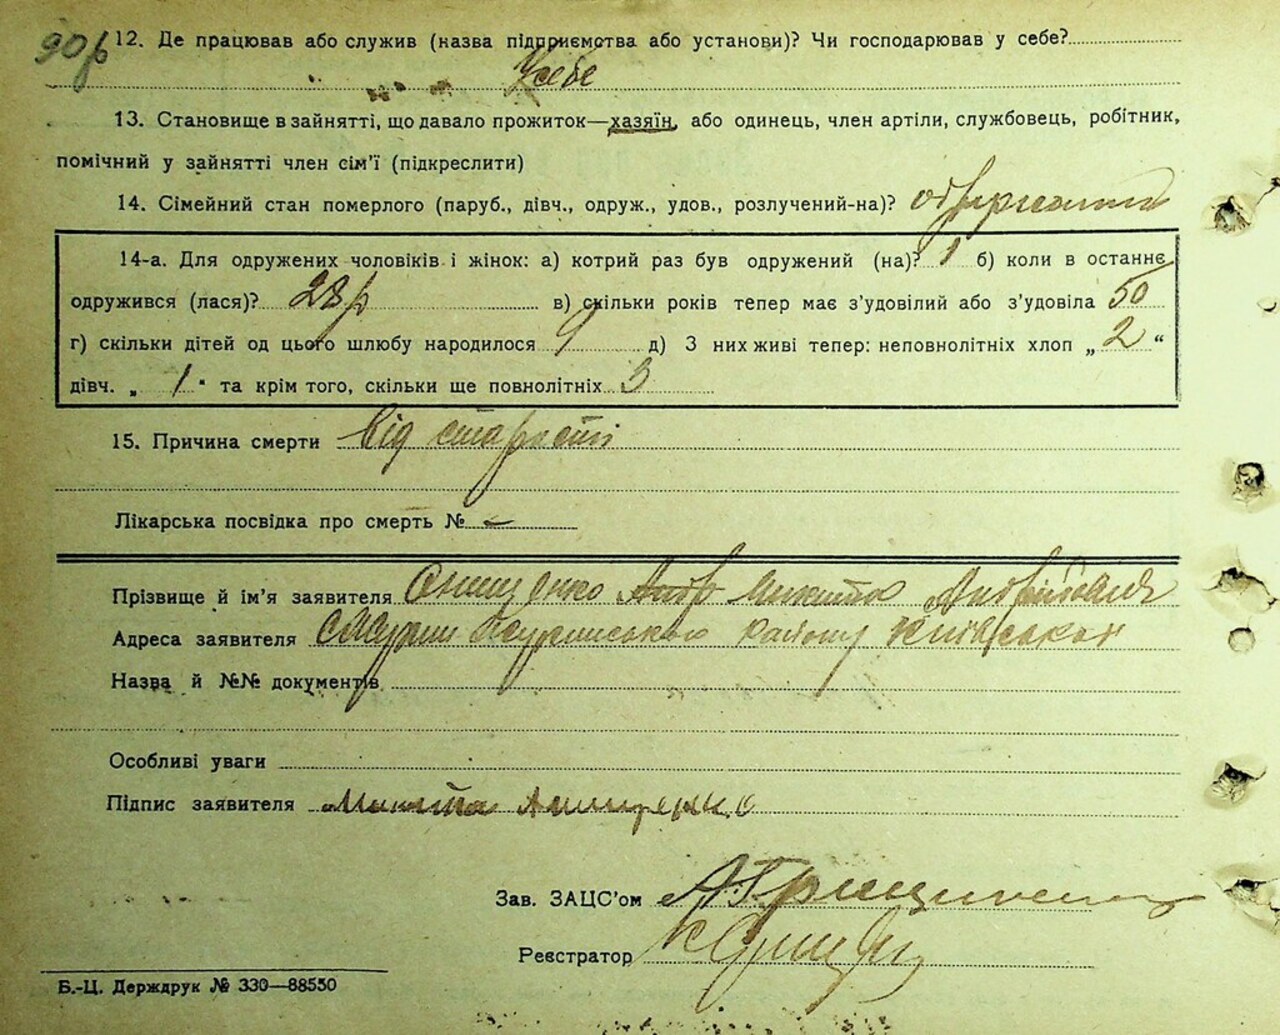 90р
12. Де працював або служив (назва підприємства або установи)? Чи господарював у себе?
У себе
13. Становище в зайнятті, що давало прожиток—хазяїн, або одинець, член артіли, службовець, робітник,
помічний у зайнятті член сім'ї (підкреслити)
14. Сімейний стан померлого (паруб., дівч., одруж., удов., розлучений-на)?
14-а. Для одружених чоловіків і жінок: а) котрий раз був одружений (на)? 1 б) коли в останнє
одружився (лася)? 28р в) скільки років тепер має з'удовілий або з'удовіла 50
г) скільки дітей од цього шлюбу народилося 9 д) З них живі тепер: неповнолітніх хлоп „ 2 “
дівч. „ 1 " та крім того, скільки ще повнолітніх 3
15. Причина смерти від старости
Лікарська посвідка про смерть № –
Прізвище й ім'я заявителя Микита
Адреса заявителя району
Назва й №№ документів
Особливі уваги
Підпис заявителя Микита
Зав. ЗАЦС'ом
Реєстратор
Б.-Ц. Держдрук № 330—88550